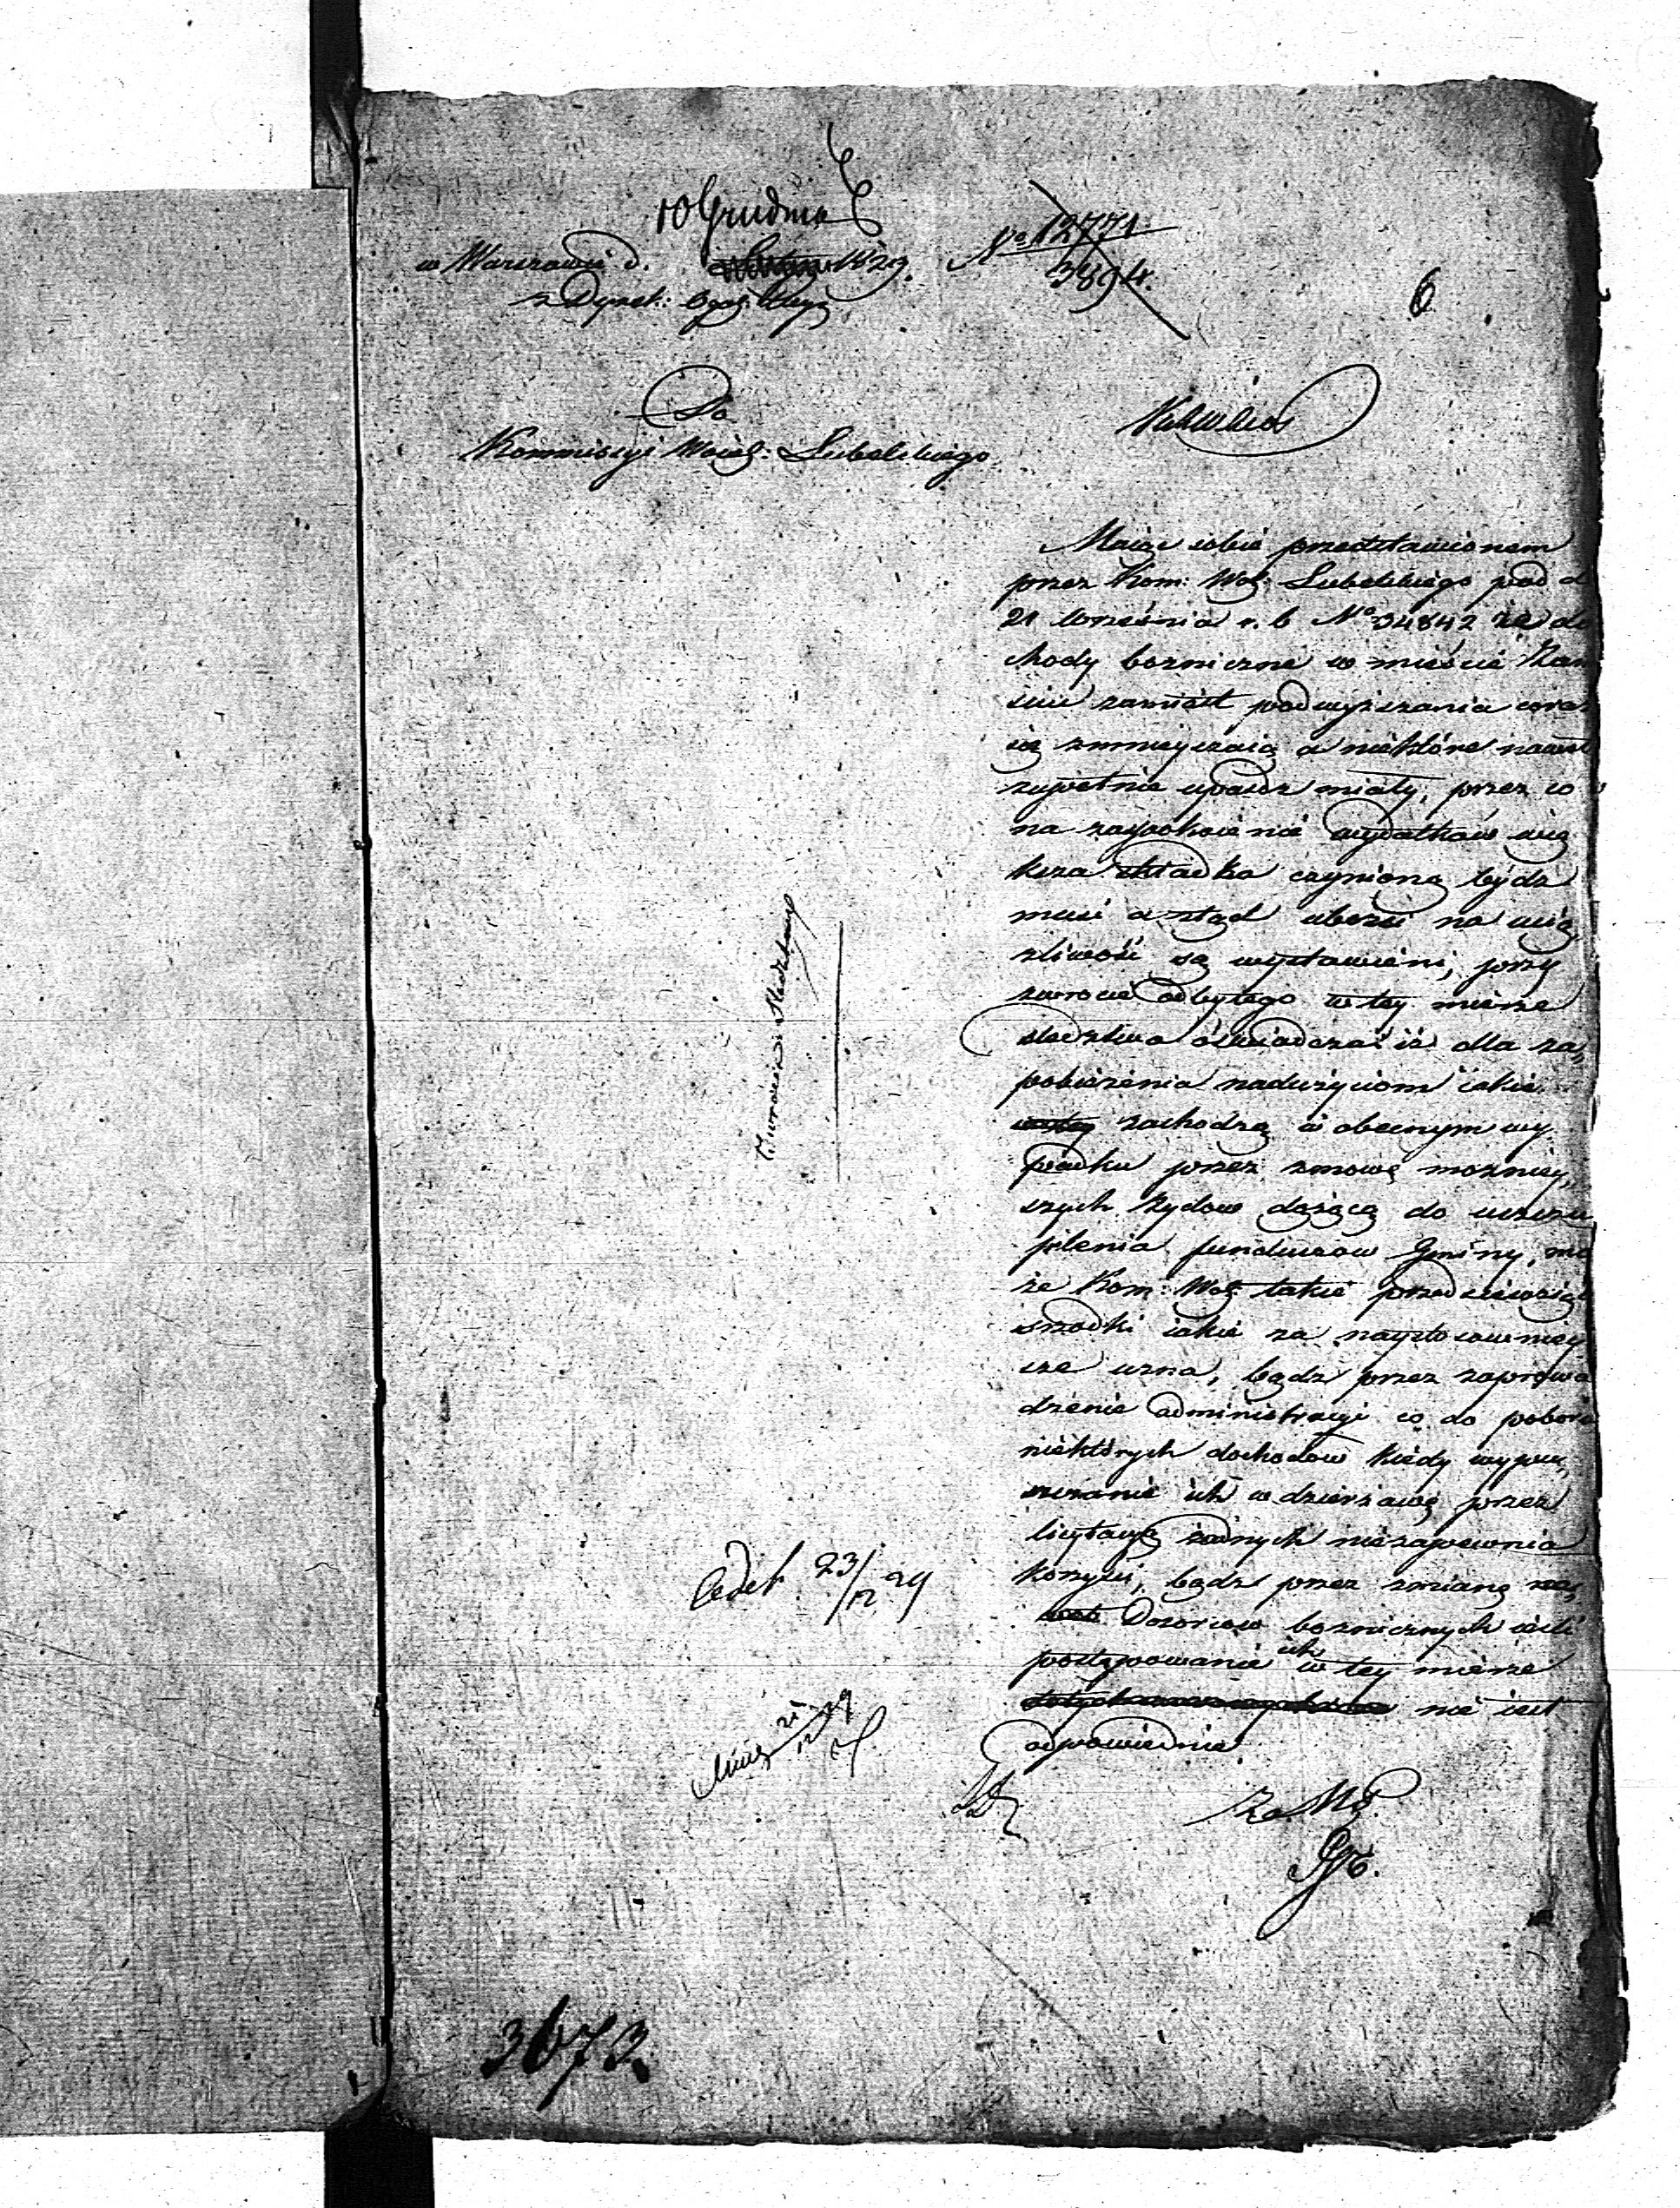 10 Grudnia
w Warszawie d. 1829.
z Dyrek: Ogól:
No 12771.
3894.
6
Do
Kommissyi Woiew: Lubelskiego
Maiąc sobie przedstawionem
przez Kom: Wo: Lubelskiego pod d
21 Września r. b No 34842 że do
chody bożniczne w mieście
zamiast podwyższania coraz
się zmnieyszaią a niektóre nawet
zupełnie upaśdz miały, przez co
na zaspokoienie wydatków wię
ksza składka czynioną bydz
musi a ztąd ubożsi na ucią
żliwość są wystawieni, przy
zwrocie odbytego w tey mierze
śledztwa oświadcza iż dla za
pobieżenia nadużyciom iakie
zachodzą w obecnym wy
padku przez zmowę możniey
szych Żydow dążącą do uszczu
plenia funduszow Gminy, mo
że Kom: Wo: takie przedsięwziąść
srzodki iakie za naystosownieysze
uzna, bądz przez zaprowa
dzenie administracyi co do poboru
niektórych dochodow kiedy wypu
szczanie ich w dzierżawę przez
licytacyą żadnych niezapewnia
korzyści, bądz przez zmianę
Dozorcow bożnicznych ieśli
postępowanie ich w tey mierze
nie iest
odpowiednie.
Zwrócić Śledztwo
23/12 29
21/12 29
Za M.
3673.